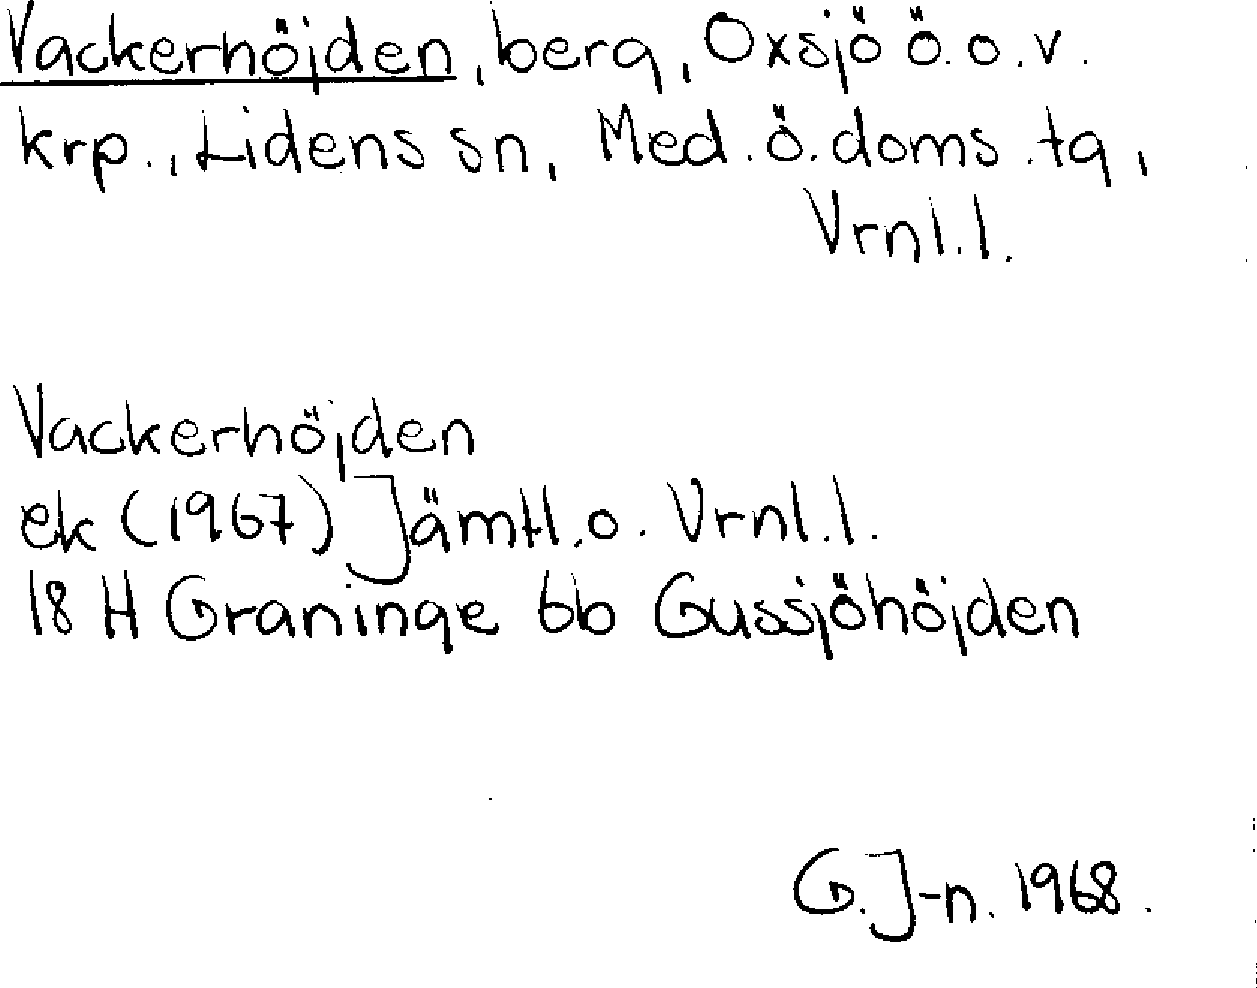 Vackerhöjden, berg, Oxsjö ö.o.v.
krp., Lidens sn, Med.ö.doms.tg,
Vrnl.l.
Vackerhöjden
ek (1967) Jämtl.o. Vrnl.l.
18 H Graninge 6b Gussjöhöjden
G.J-n. 1968.